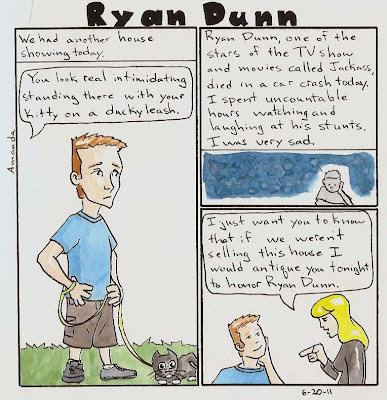 Ryan Dunn
We had another house
showing today.
You look real intimidating
standing there with your
kitty on a ducky leash.
Amanda
Ryan Dunn, one of the
stars of the TV show
and movies called Jackass,
died in a car crash today.
I spent uncountable
hours watching and
laughing at his stunts.
I was very sad.
I just want you to know
that if we weren't
selling this house I
would antique you tonight
to honor Ryan Dunn.
6-20-11